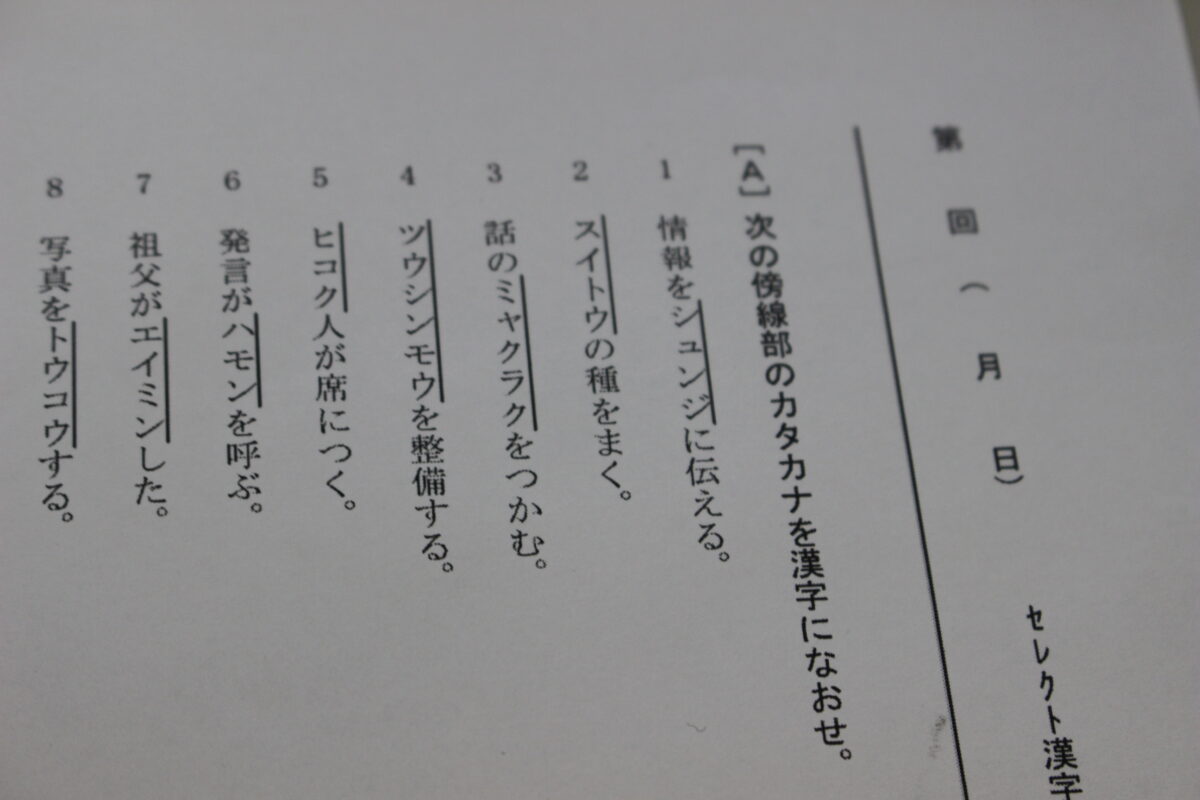 第　回（　月　日）　セレクト漢字
［A］次の傍線部のカタカナを漢字になおせ。
1　情報をシュンジに伝える。
2　スイトウの種をまく。
3　話のミャクラクをつかむ。
4　ツウシンモウを整備する。
5　ヒコク人が席につく。
6　発言がハモンを呼ぶ。
7　祖父がエイミンした。
8　写真をトウコウする。